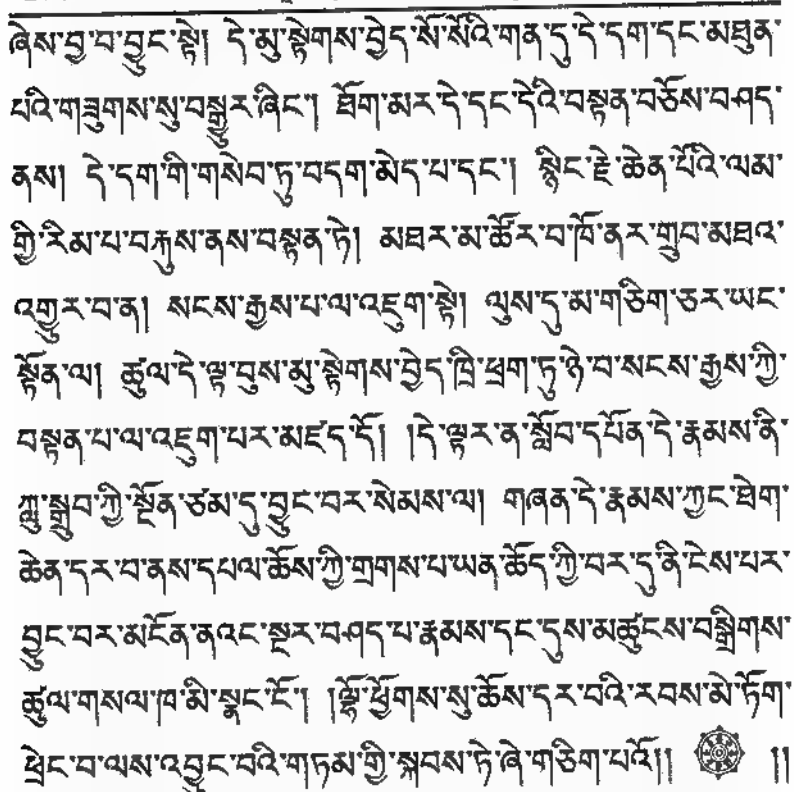 ཞེས་བྱ་བ་བྱུང་སྟེ། དེ་མུ་སྟེགས་བྱེད་སོ་སོའི་གན་དུ་དེ་དག་དང་མཐུན་
པའི་གཟུགས་སུ་བསྒྱུར་ཞིང་། ཐོག་མར་དེ་དང་དེའི་བསྟན་བཅོས་བཤད་
ནས། དེ་དག་གི་གསེབ་ཏུ་བདག་མེད་པ་དང་། སྙིང་རྗེ་ཆེན་པོའི་ལམ་
གྱི་རིམ་པ་བརྐུས་ནས་བསྟན་ཏེ། མཐར་མ་ཚོར་བ་ཁོ་ནར་གྲུབ་མཐའ་
འགྱུར་བ་ན། སངས་རྒྱས་པ་ལ་འཇུག་སྟེ། ལུས་དུ་མ་གཅིག་ཅར་ཡང་
སྟོན་ལ། ཚུལ་དེ་ལྟ་བུས་མུ་སྟེགས་བྱེད་ཁྲི་ཕྲག་ཏུ་ཉེ་བ་སངས་རྒྱས་ཀྱི་
བསྟན་པ་ལ་འཇུག་པར་མཛད་དོ། །དེ་ལྟར་ན་སློབ་དཔོན་དེ་རྣམས་ནི་
ཀླུ་སྒྲུབ་ཀྱི་སྔོན་ཙམ་དུ་བྱུང་བར་སེམས་ལ། གཞན་དེ་རྣམས་ཀྱང་ཐེག་
ཆེན་དར་བ་ནས་དཔལ་ཆོས་ཀྱི་གྲགས་པ་ཡན་ཆོད་ཀྱི་བར་དུ་ནི་ངེས་པར་
བྱུང་བར་མངོན་ནའང་སྔར་བཤད་པ་རྣམས་དང་དུས་མཚུངས་བསྒྲིགས་
ཚུལ་གསལ་ཁ་མི་སྣང་ངོ་། །ལྷོ་ཕྱོགས་སུ་ཆོས་དར་བའི་རབས་མེ་ཏོག་
ཕྲེང་བ་ལས་འབྱུང་བའི་གཏམ་གྱི་སྐབས་ཏེ་ཞེ་གཅིག་པའོ།། །།